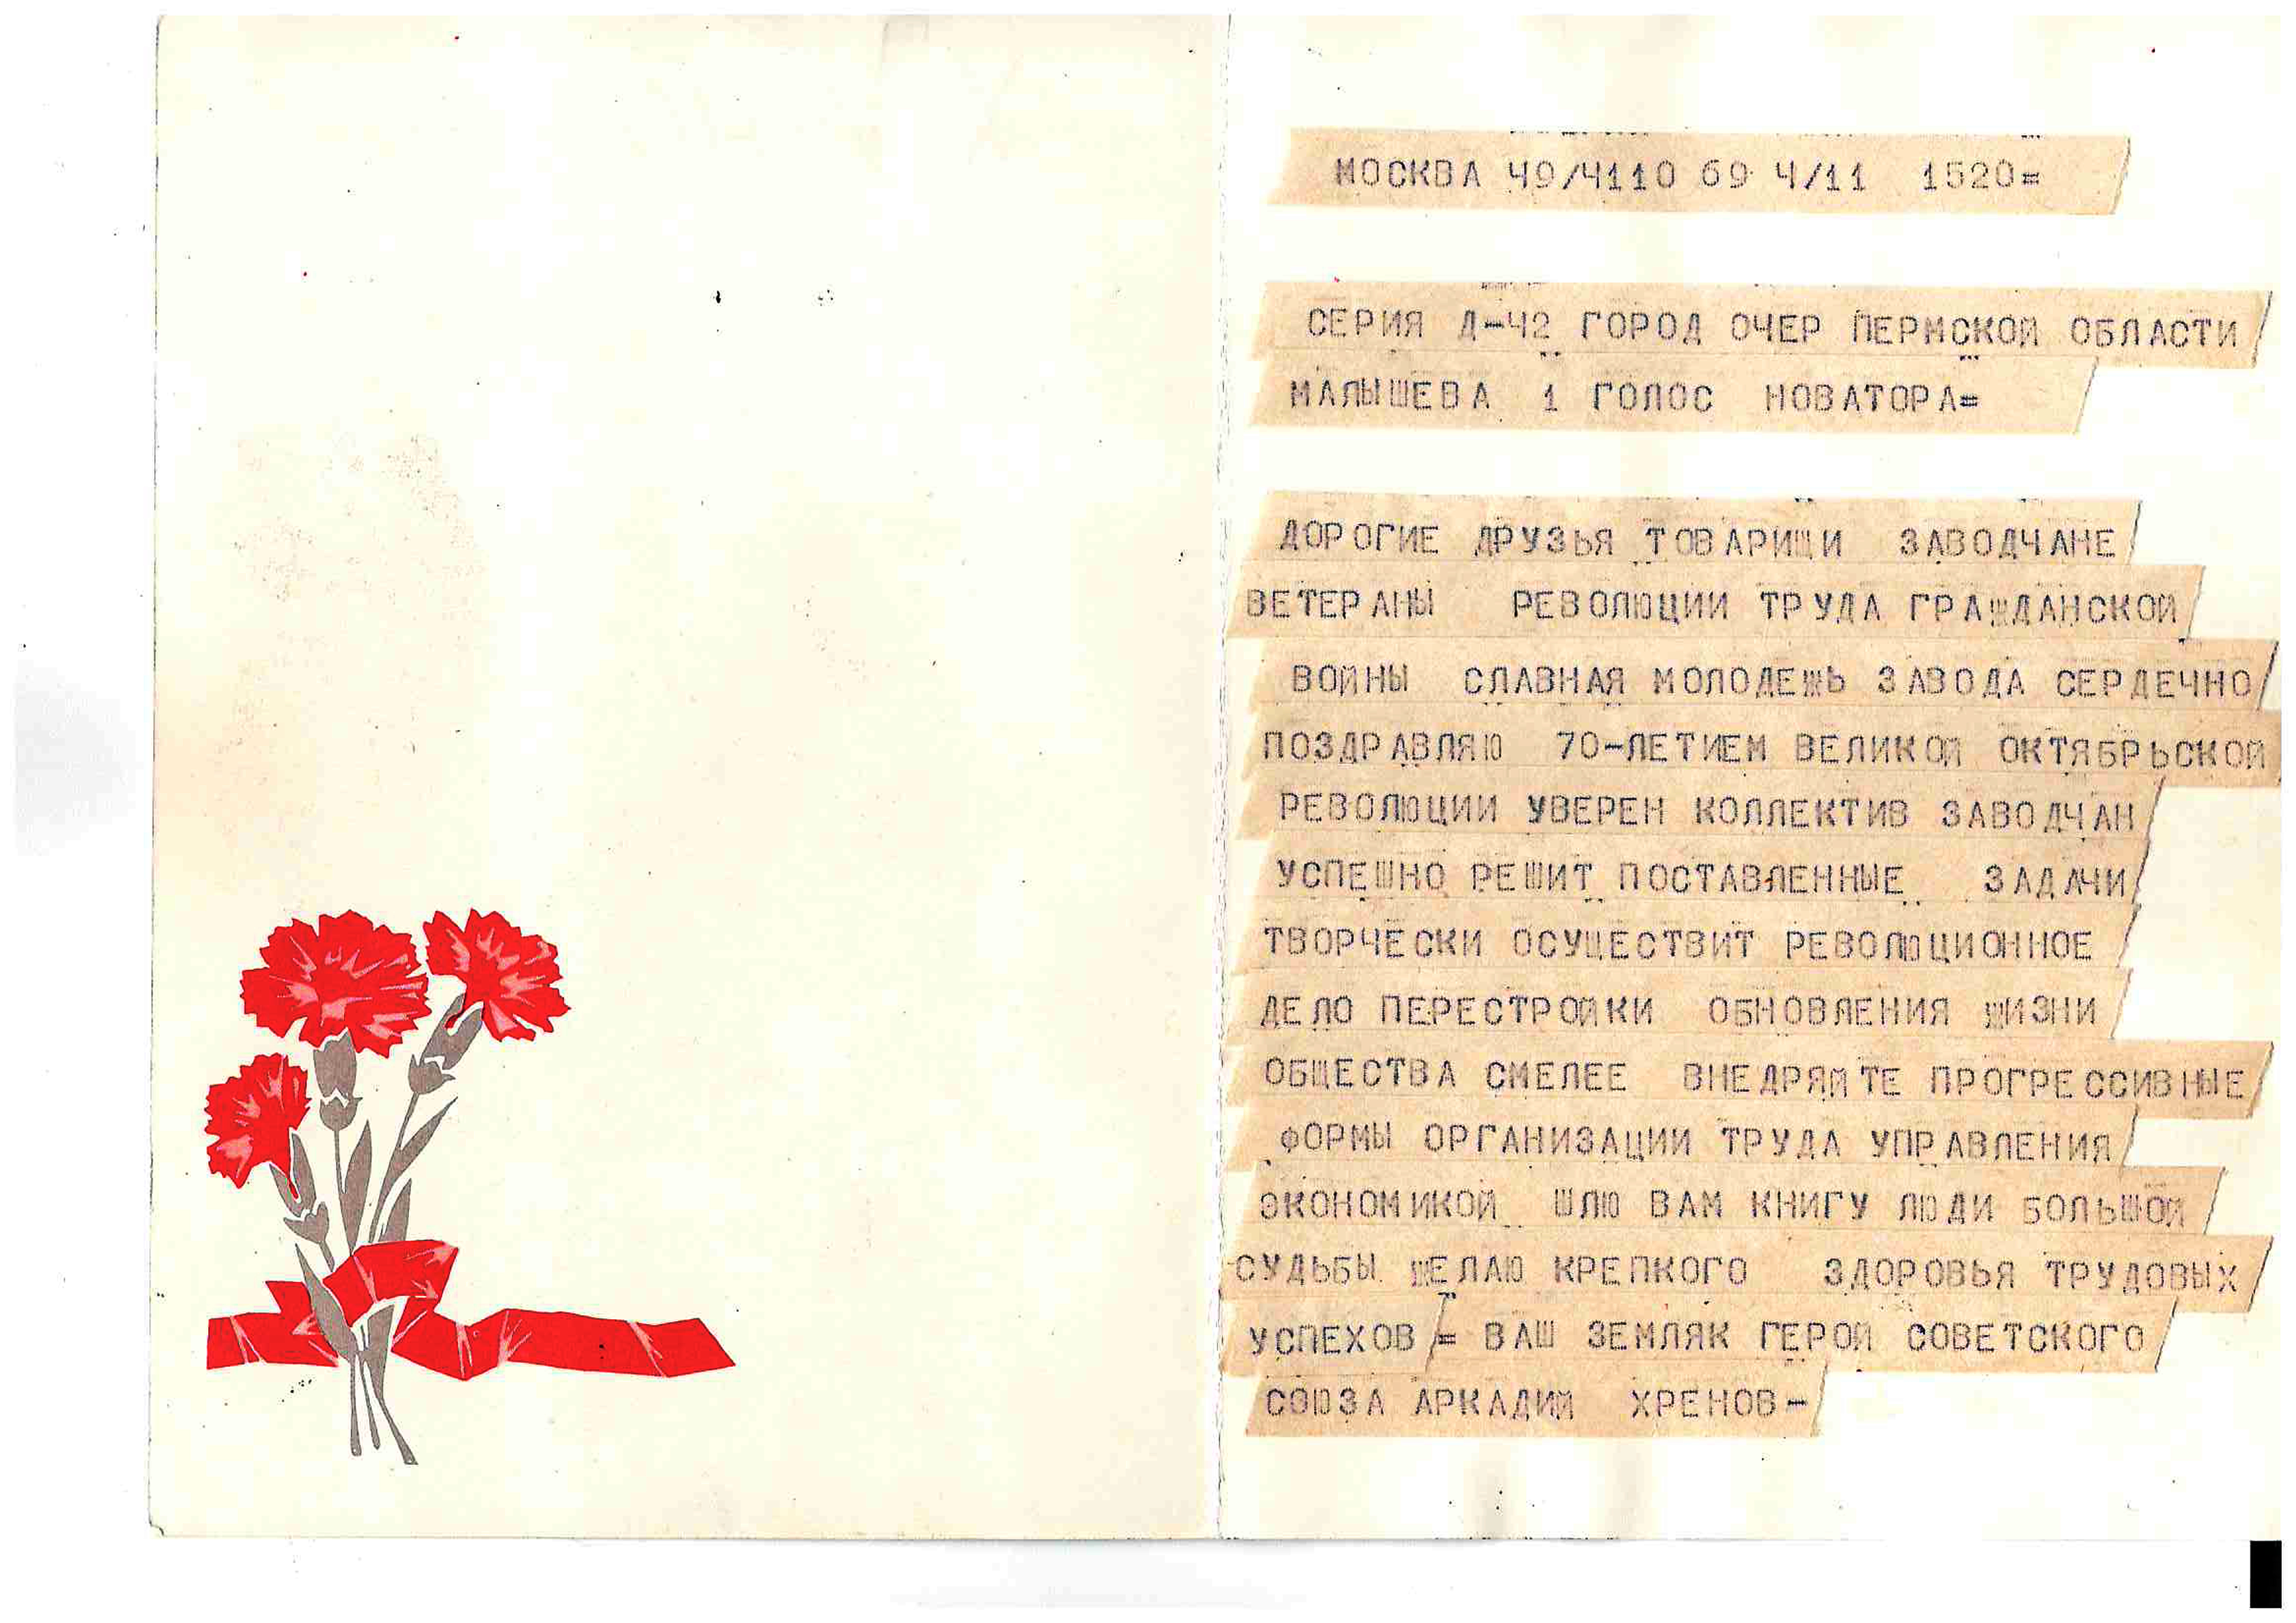 МОСКВА 49/4110 69 4/11 1520=
СЕРИЯ Д-42 ГОРОД ОЧЕР ПЕРМСКОЙ ОБЛАСТИ
МАЛЫШЕВА 1 ГОЛОС НОВАТОРА=
ДОРОГИЕ ДРУЗЬЯ ТОВАРИЩИ ЗАВОДЧАНЕ
ВЕТЕРАНЫ РЕВОЛЮЦИИ ТРУДА ГРАЖДАНСКОЙ
ВОЙНЫ СЛАВНАЯ МОЛОДЕЖЬ ЗАВОДА СЕРДЕЧНО
ПОЗДРАВЛЯЮ 70-ЛЕТИЕМ ВЕЛИКОЙ ОКТЯБРЬСКОЙ
РЕВОЛЮЦИИ УВЕРЕН КОЛЛЕКТИВ ЗАВОДЧАН
УСПЕШНО РЕШИТ ПОСТАВЛЕННЫЕ ЗАДАЧИ
ТВОРЧЕСКИ ОСУЩЕСТВИТ РЕВОЛЮЦИОННОЕ
ДЕЛО ПЕРЕСТРОЙКИ ОБНОВЛЕНИЯ ЖИЗНИ
ОБЩЕСТВА СМЕЛЕЕ ВНЕДРЯЙТЕ ПРОГРЕССИВНЫЕ
ФОРМЫ ОРГАНИЗАЦИИ ТРУДА УПРАВЛЕНИЯ
ЭКОНОМИКОЙ ШЛЮ ВАМ КНИГУ ЛЮДИ БОЛЬШОЙ
СУДЬБЫ ЖЕЛАЮ КРЕПКОГО ЗДОРОВЬЯ ТРУДОВЫХ
УСПЕХОВ = ВАШ ЗЕМЛЯК ГЕРОЙ СОВЕТСКОГО
СОЮЗА АРКАДИЙ ХРЕНОВ-